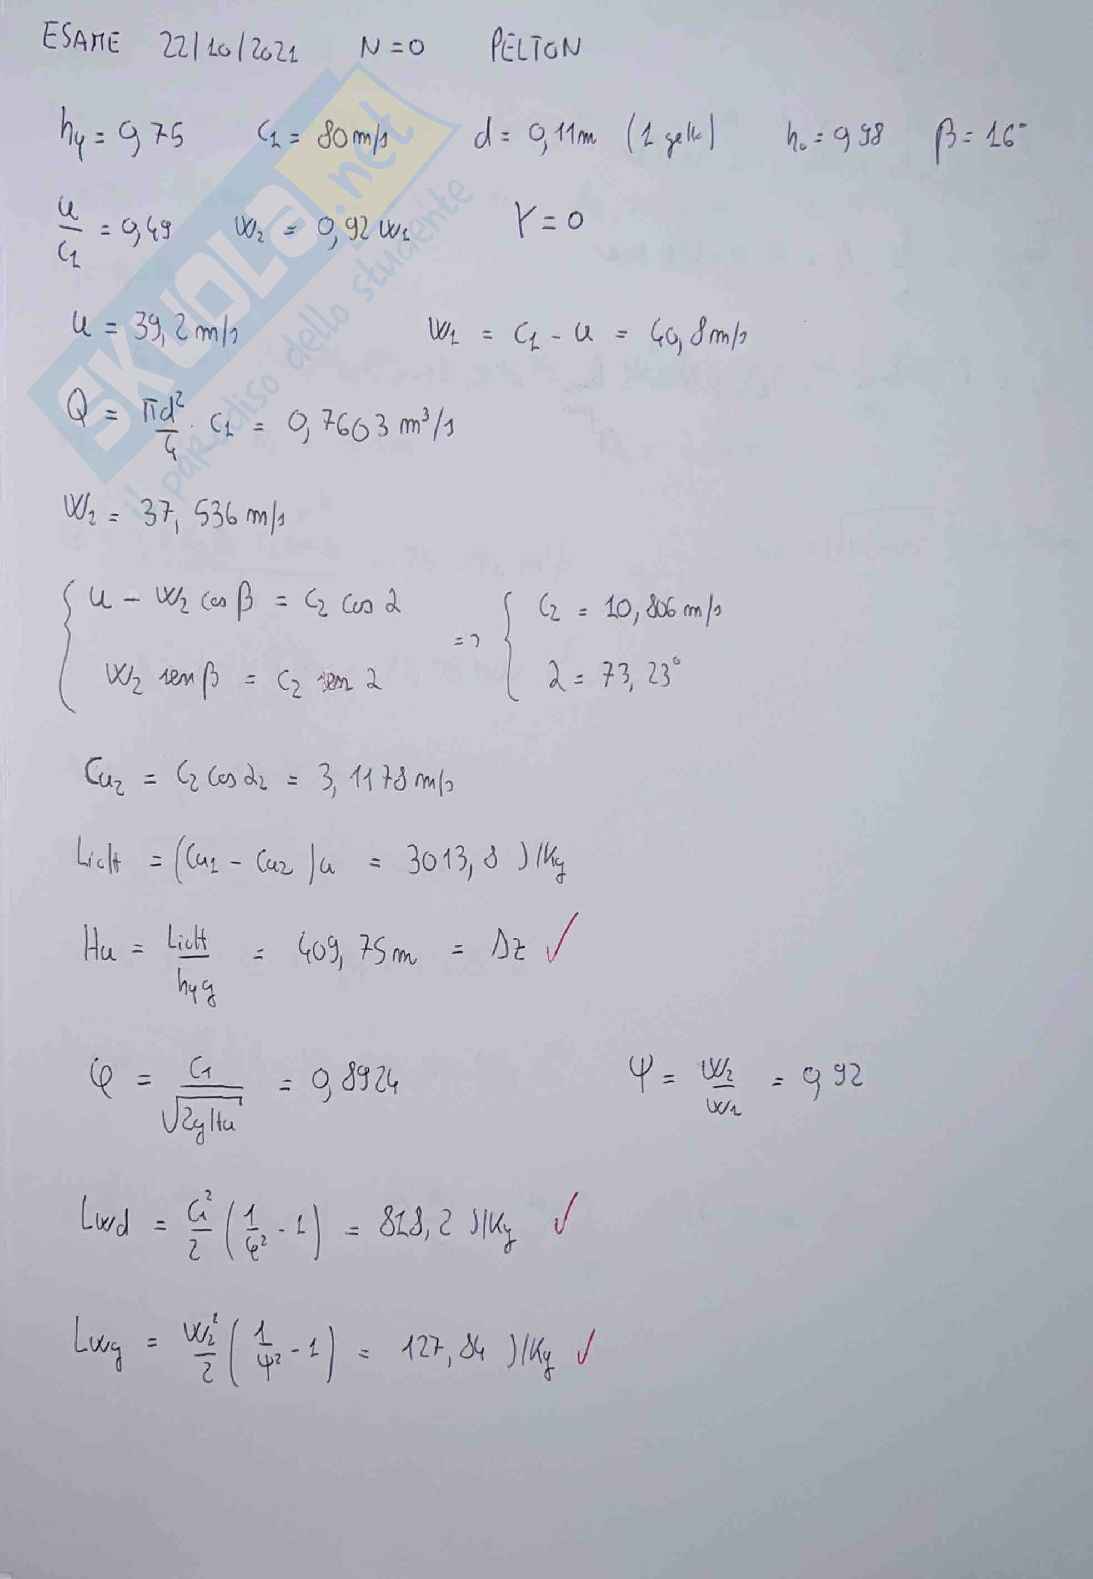 ESAME 22/10/2021 N=0 PELTON
hy = 0,75 C1 = 80 m/s d = 0,11m (1 getto) ho = 0,98 β = 16°
u/C1 = 0,49 W2 = 0,92 W1 Y = 0
u = 39,2 m/s W1 = C1 - u = 40,8 m/s
Q = πd²/4 · C1 = 0,7603 m³/s
W2 = 37,536 m/s
{ u - W2 cos β = C2 cos α => { C2 = 10,806 m/s
W2 sen β = C2 sen α α = 73,23°
Cu2 = C2 cos α2 = 3,1178 m/s
Lid = (Cu1 - Cu2) u = 3013,8 J/Kg
Hu = Lid/hyg = 409,75 m = Δz ✓
φ = C1/√2gHu = 0,8924 Ψ = W2/W1 = 0,92
Lwd = C1²/2 (1/φ² - 1) = 818,2 J/Kg ✓
Lwg = W2²/2 (1/Ψ² - 1) = 127,84 J/Kg ✓
SKUOLA.net
il paradiso dello studente